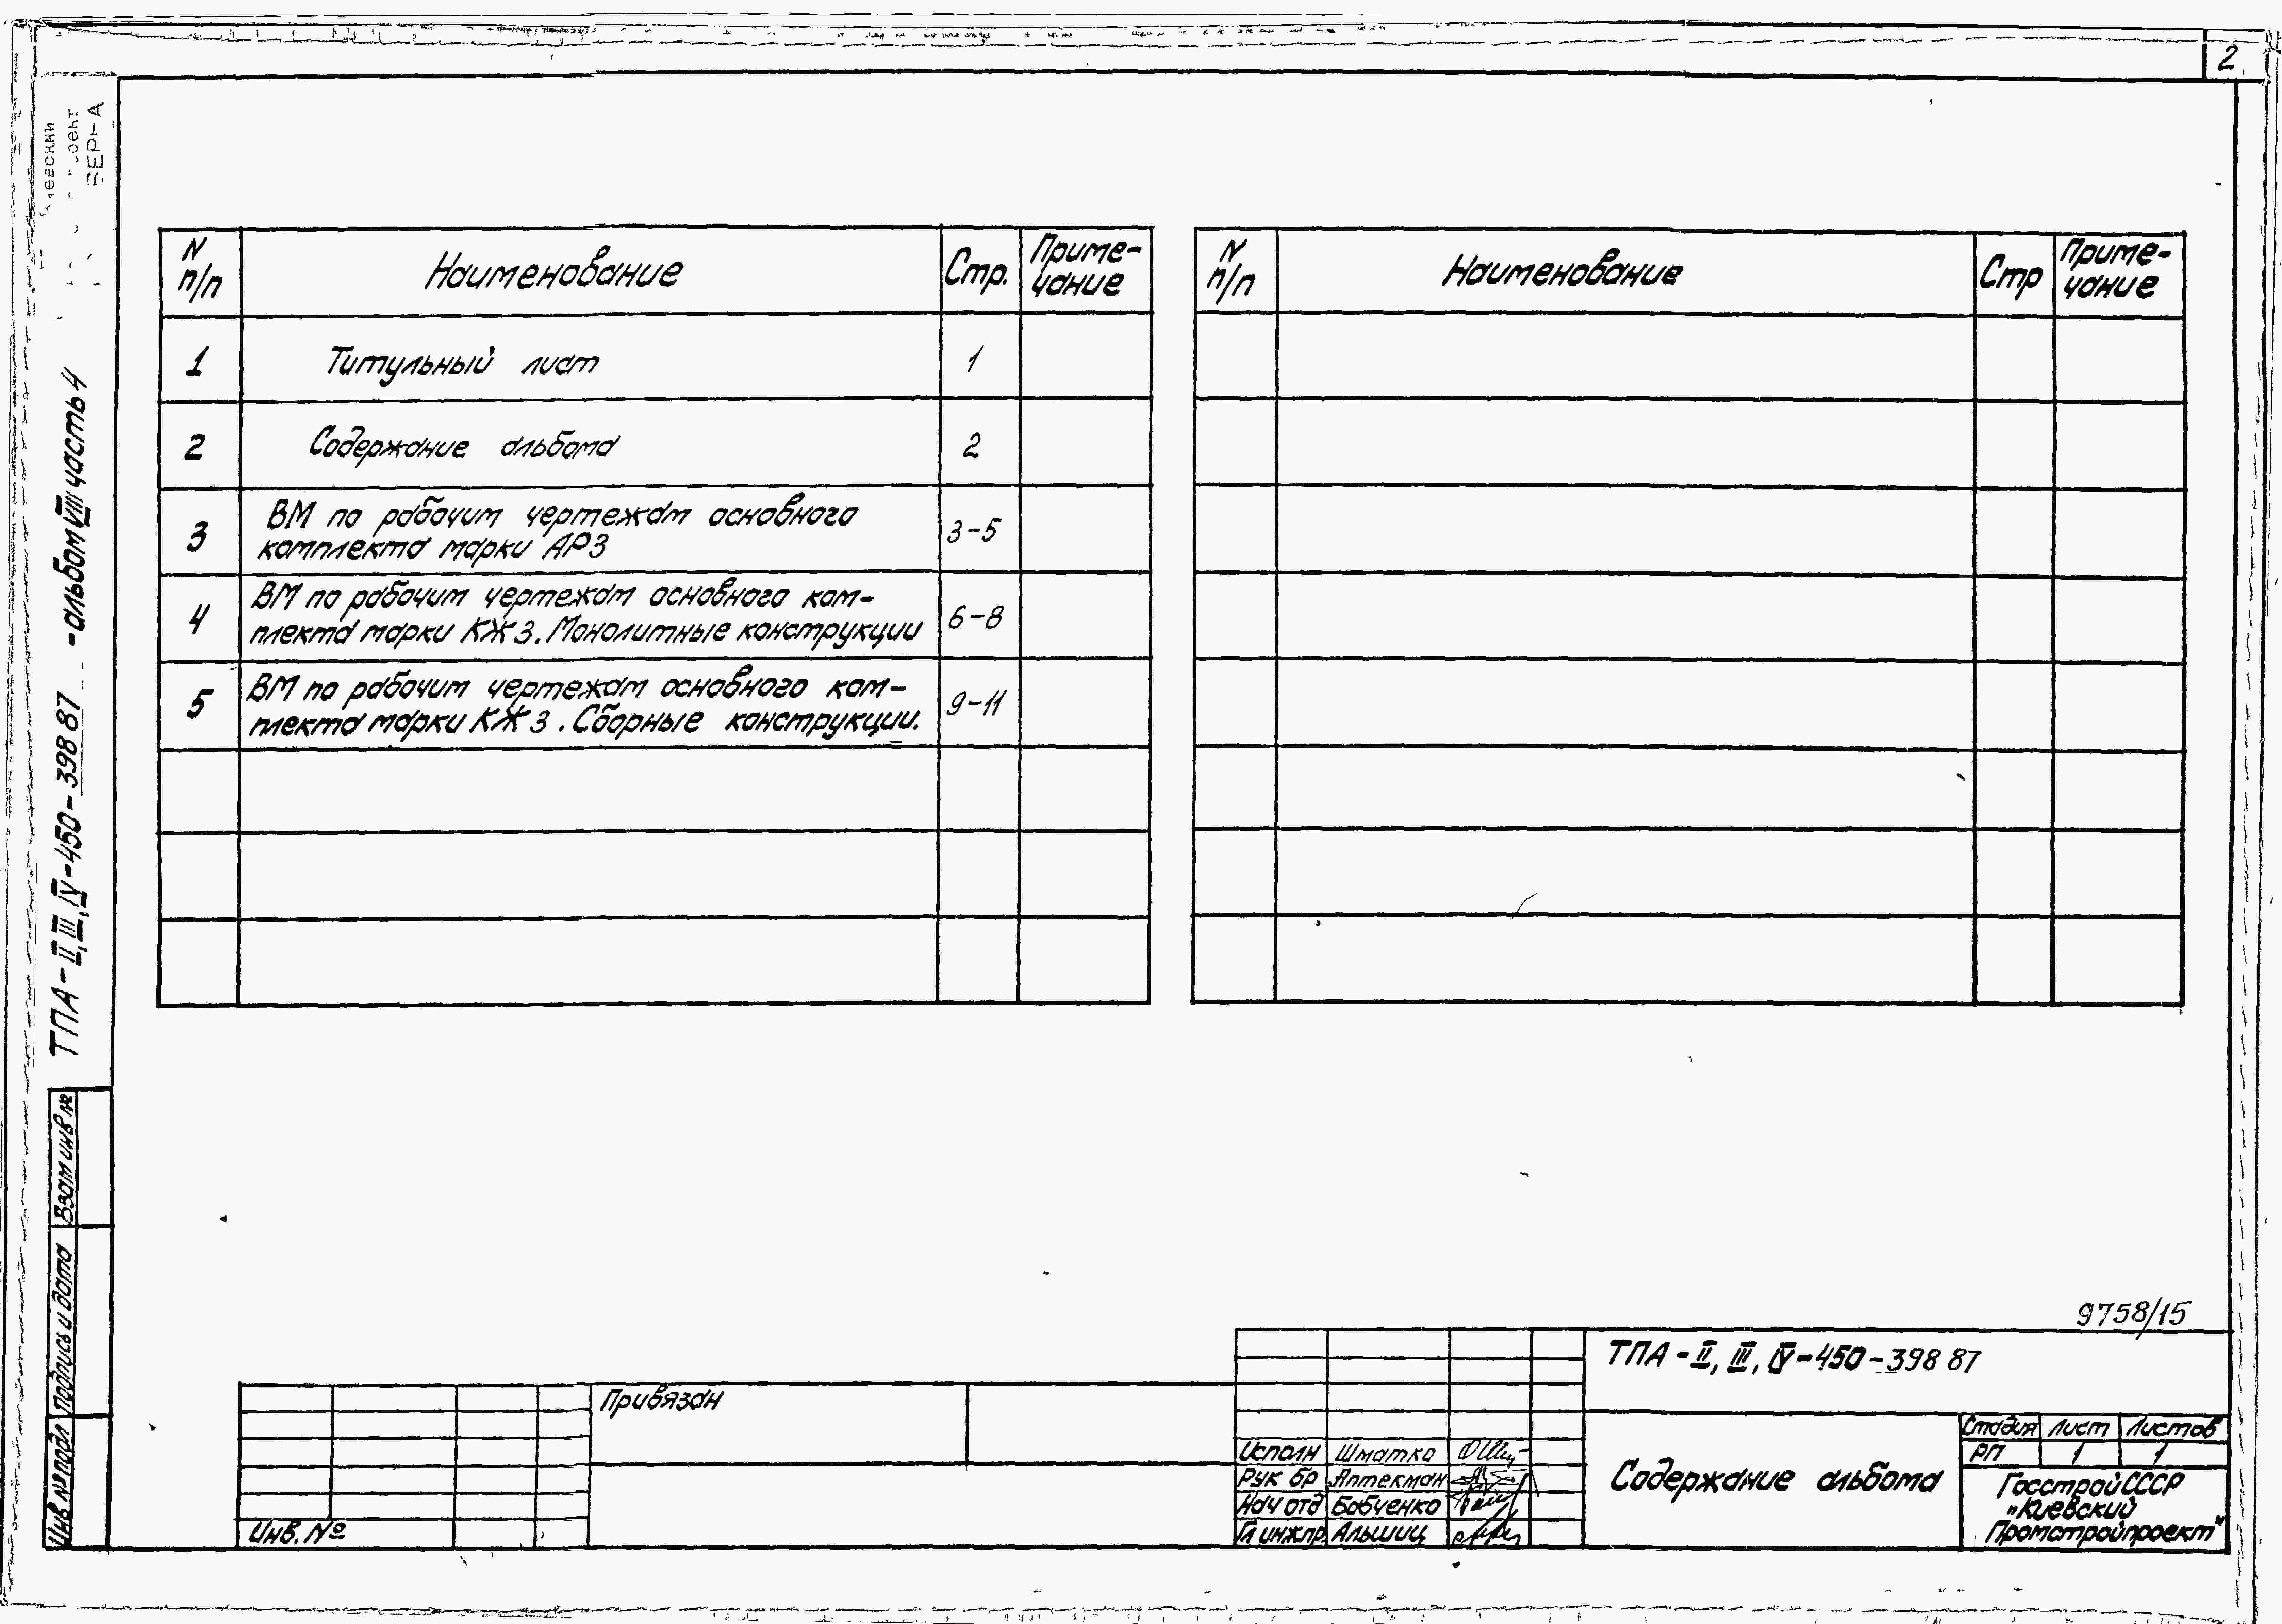 2
ВЕРНА
ТПА-II, III, IV-450-398 87 -альбом VIII часть 4
N п/п
Наименование
Стр.
Приме-
чание
1
Титульный лист
1
2
Содержание альбома
2
3
ВМ по рабочим чертежам основного
комплекта марки АР3
3-5
4
ВМ по рабочим чертежам основного ком-
плекта марки КЖ3. Монолитные конструкции
6-8
5
ВМ по рабочим чертежам основного ком-
плекта марки КЖ3. Сборные конструкции.
9-11
N п/п
Наименование
Стр
Приме-
чание
Взам инв №
Подпись и дата
Инв № подл
9758/15
Привязан
Инв. №
ТПА-II, III, IV-450-398 87
Исполн Шматко
Рук бр Аптекман
Нач отд Бабченко
Гл инжпр. Альшиц
Содержание альбома
Стадия Лист Листов
РП 1 1
Госстрой СССР
„Киевский
Промстройпроект"